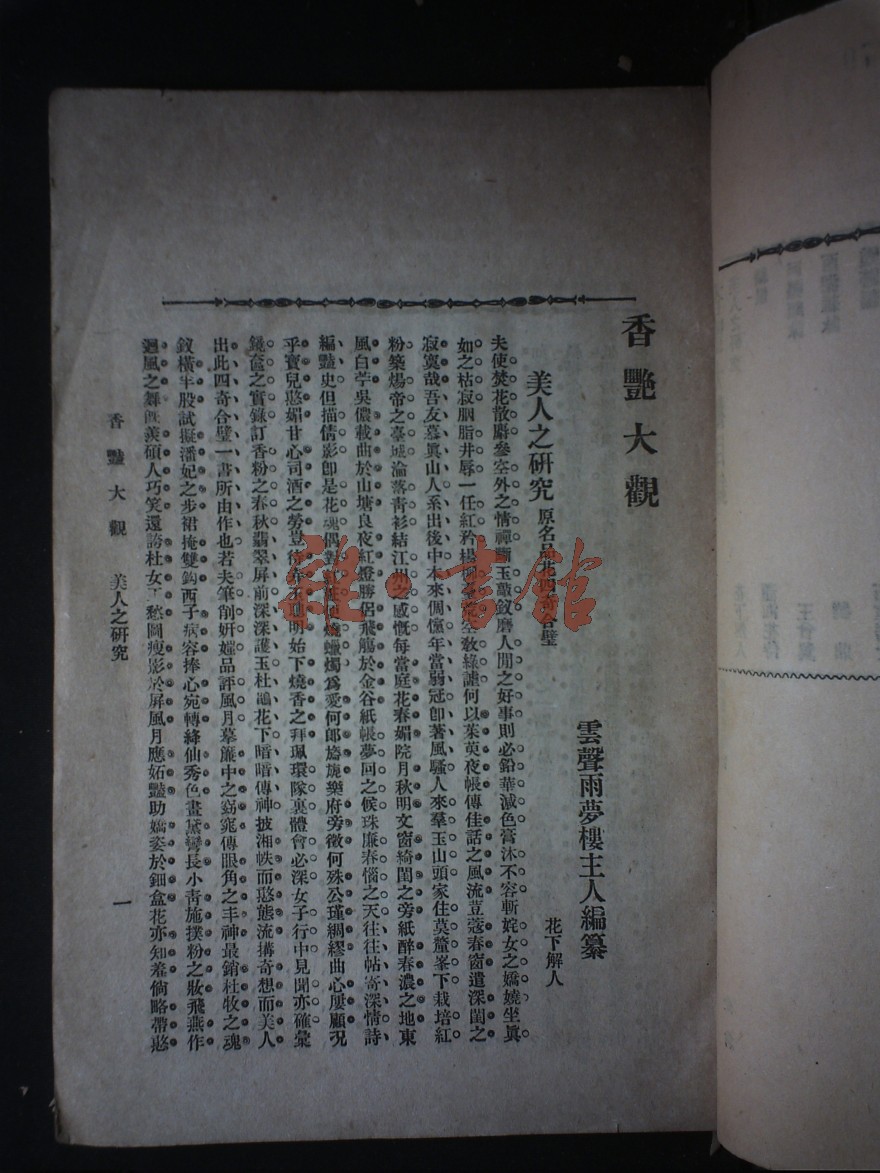 香豔大觀
雲聲雨夢樓主人編纂
美人之研究 原名品花四奇合璧 花下解人
夫使焚花散麝參空外之情禪斷玉敲釵磨人間之好事則必鉛華減色膏沐不容斬姹女之嬌嬈坐眞
如之枯寂胭脂井辱一任紅矜楊柳 空敎綠讖何以茱萸夜帳傳佳話之風流荳蔻春窗遺深閨之
寂寞哉吾友慕眞山人系出後中本來倜儻年當弱冠卽著風騷人來羣玉山頭家住莫釐峯下栽培紅
粉築煬帝之臺城淪落靑衫結江州之感慨每當庭花春媚院月秋明文窗綺閨之旁紙醉春濃之地東
風白苧吳儂載曲於山塘良夜紅燈勝侶飛觴於金谷紙帳夢回之候珠廉春惱之天往往帖寄深情詩
編豔史但描倩影卽是花魂偶對 燒蠟燭爲愛何郎旖旎樂府旁徵何殊公瑾綢繆曲心屢顧况
乎寶兒憨媚甘心司酒之勞豈待 明始下燒香之拜珮環隊裏體會必深女子行中見聞亦確彙
鏡奩之實錄訂香粉之春秋翡翠屏前深深護玉杜鵑花下暗暗傳神披湘帙而憨態流搆奇想而美人
出此四奇合璧一書所由作也若夫筆削妍媸品評風月摹簾中之窈窕傳眼角之丰神最銷杜牧之魂
釵橫半股試擬潘妃之步裙掩雙鈎西子病容捧心宛轉絳仙秀色畫黛彎長小靑施撲粉之妝飛燕作
迴風之舞旣羨碩人巧笑還誇杜女工愁圖瘦影於屏風月應妬豔助嬌姿於鈿盒花亦知羞倘略帶憨
香豔大觀 美人之研究 一
雜·書館